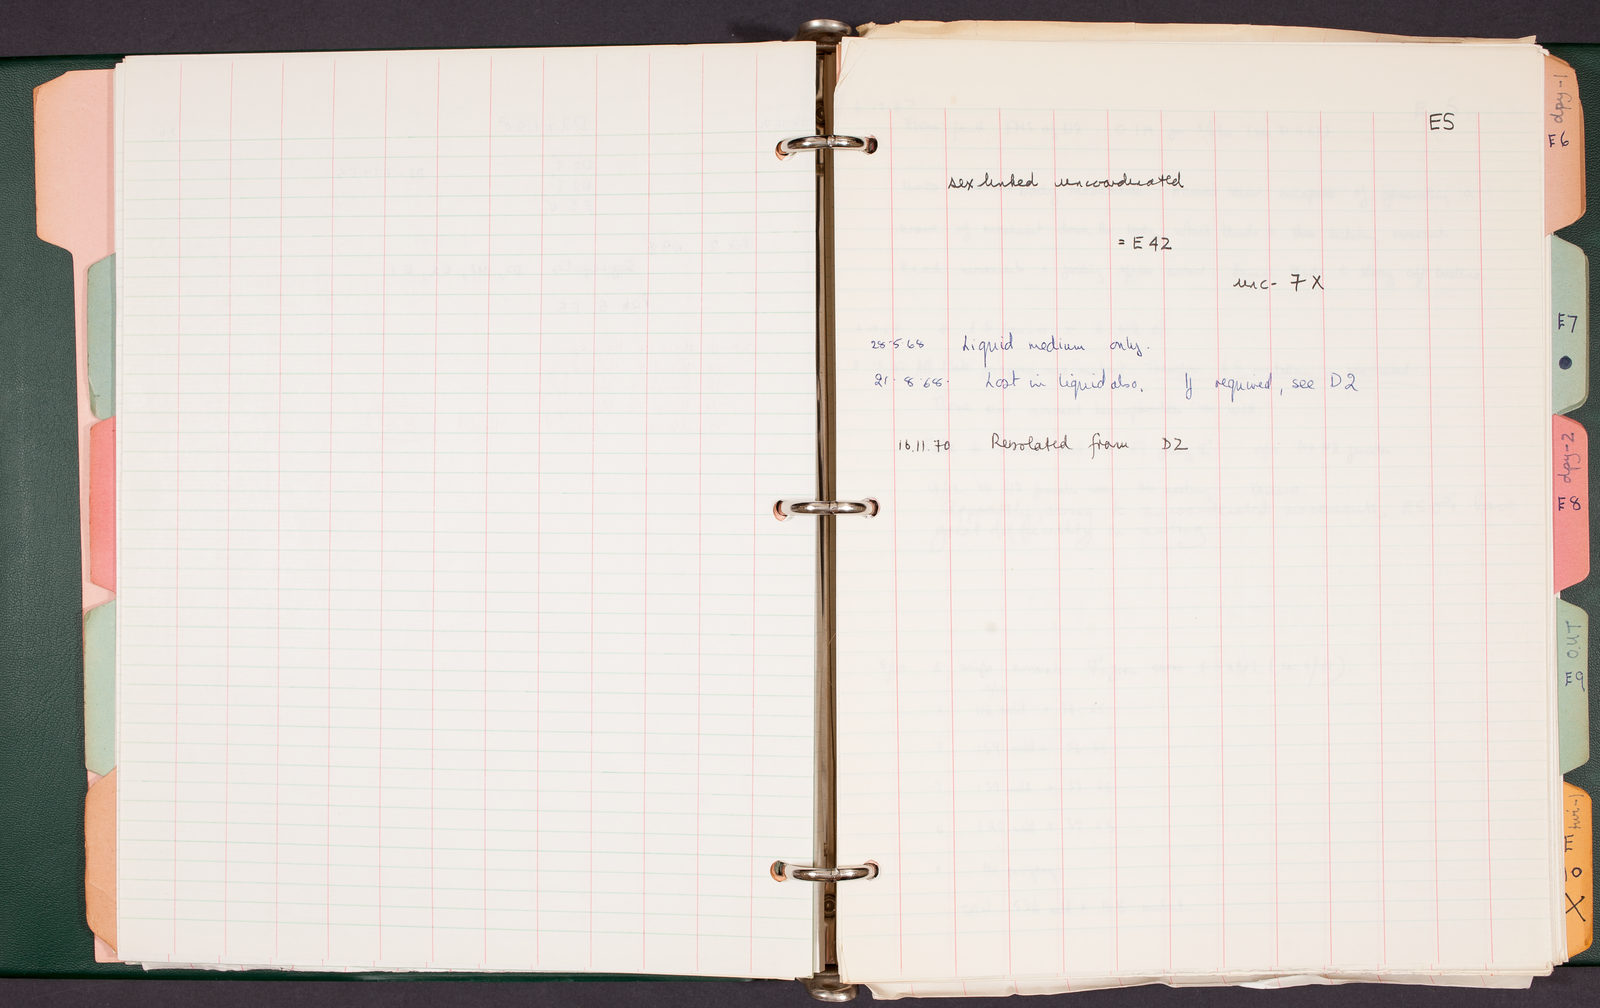 E5
sex linked uncoordinated
= E42
unc-7 X
28·5·68 Liquid medium only.
21·8·68· Lost in liquid also. If required, see D2
16.11.70 Reisolated from D2
dpy-1
E6
E7
dpy-2
E8
OUT
E9
E10
X